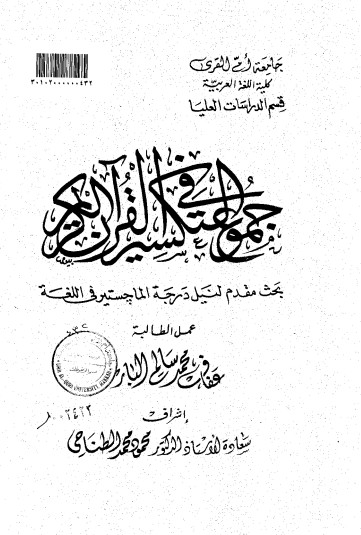 جامعة أم القرى
كلية اللغة العربية
قسم الدراسات العليا
٣٠١٠٢٠٠٠٠٠٠٤٣٢
جموع التكسير في القرآن الكريم
بحث مقدم لنيل درجة الماجستير في اللغة
عمل الطالبة
محمد سالم
إشراف
سعادة الأستاذ الدكتور محمود محمد الطناحي